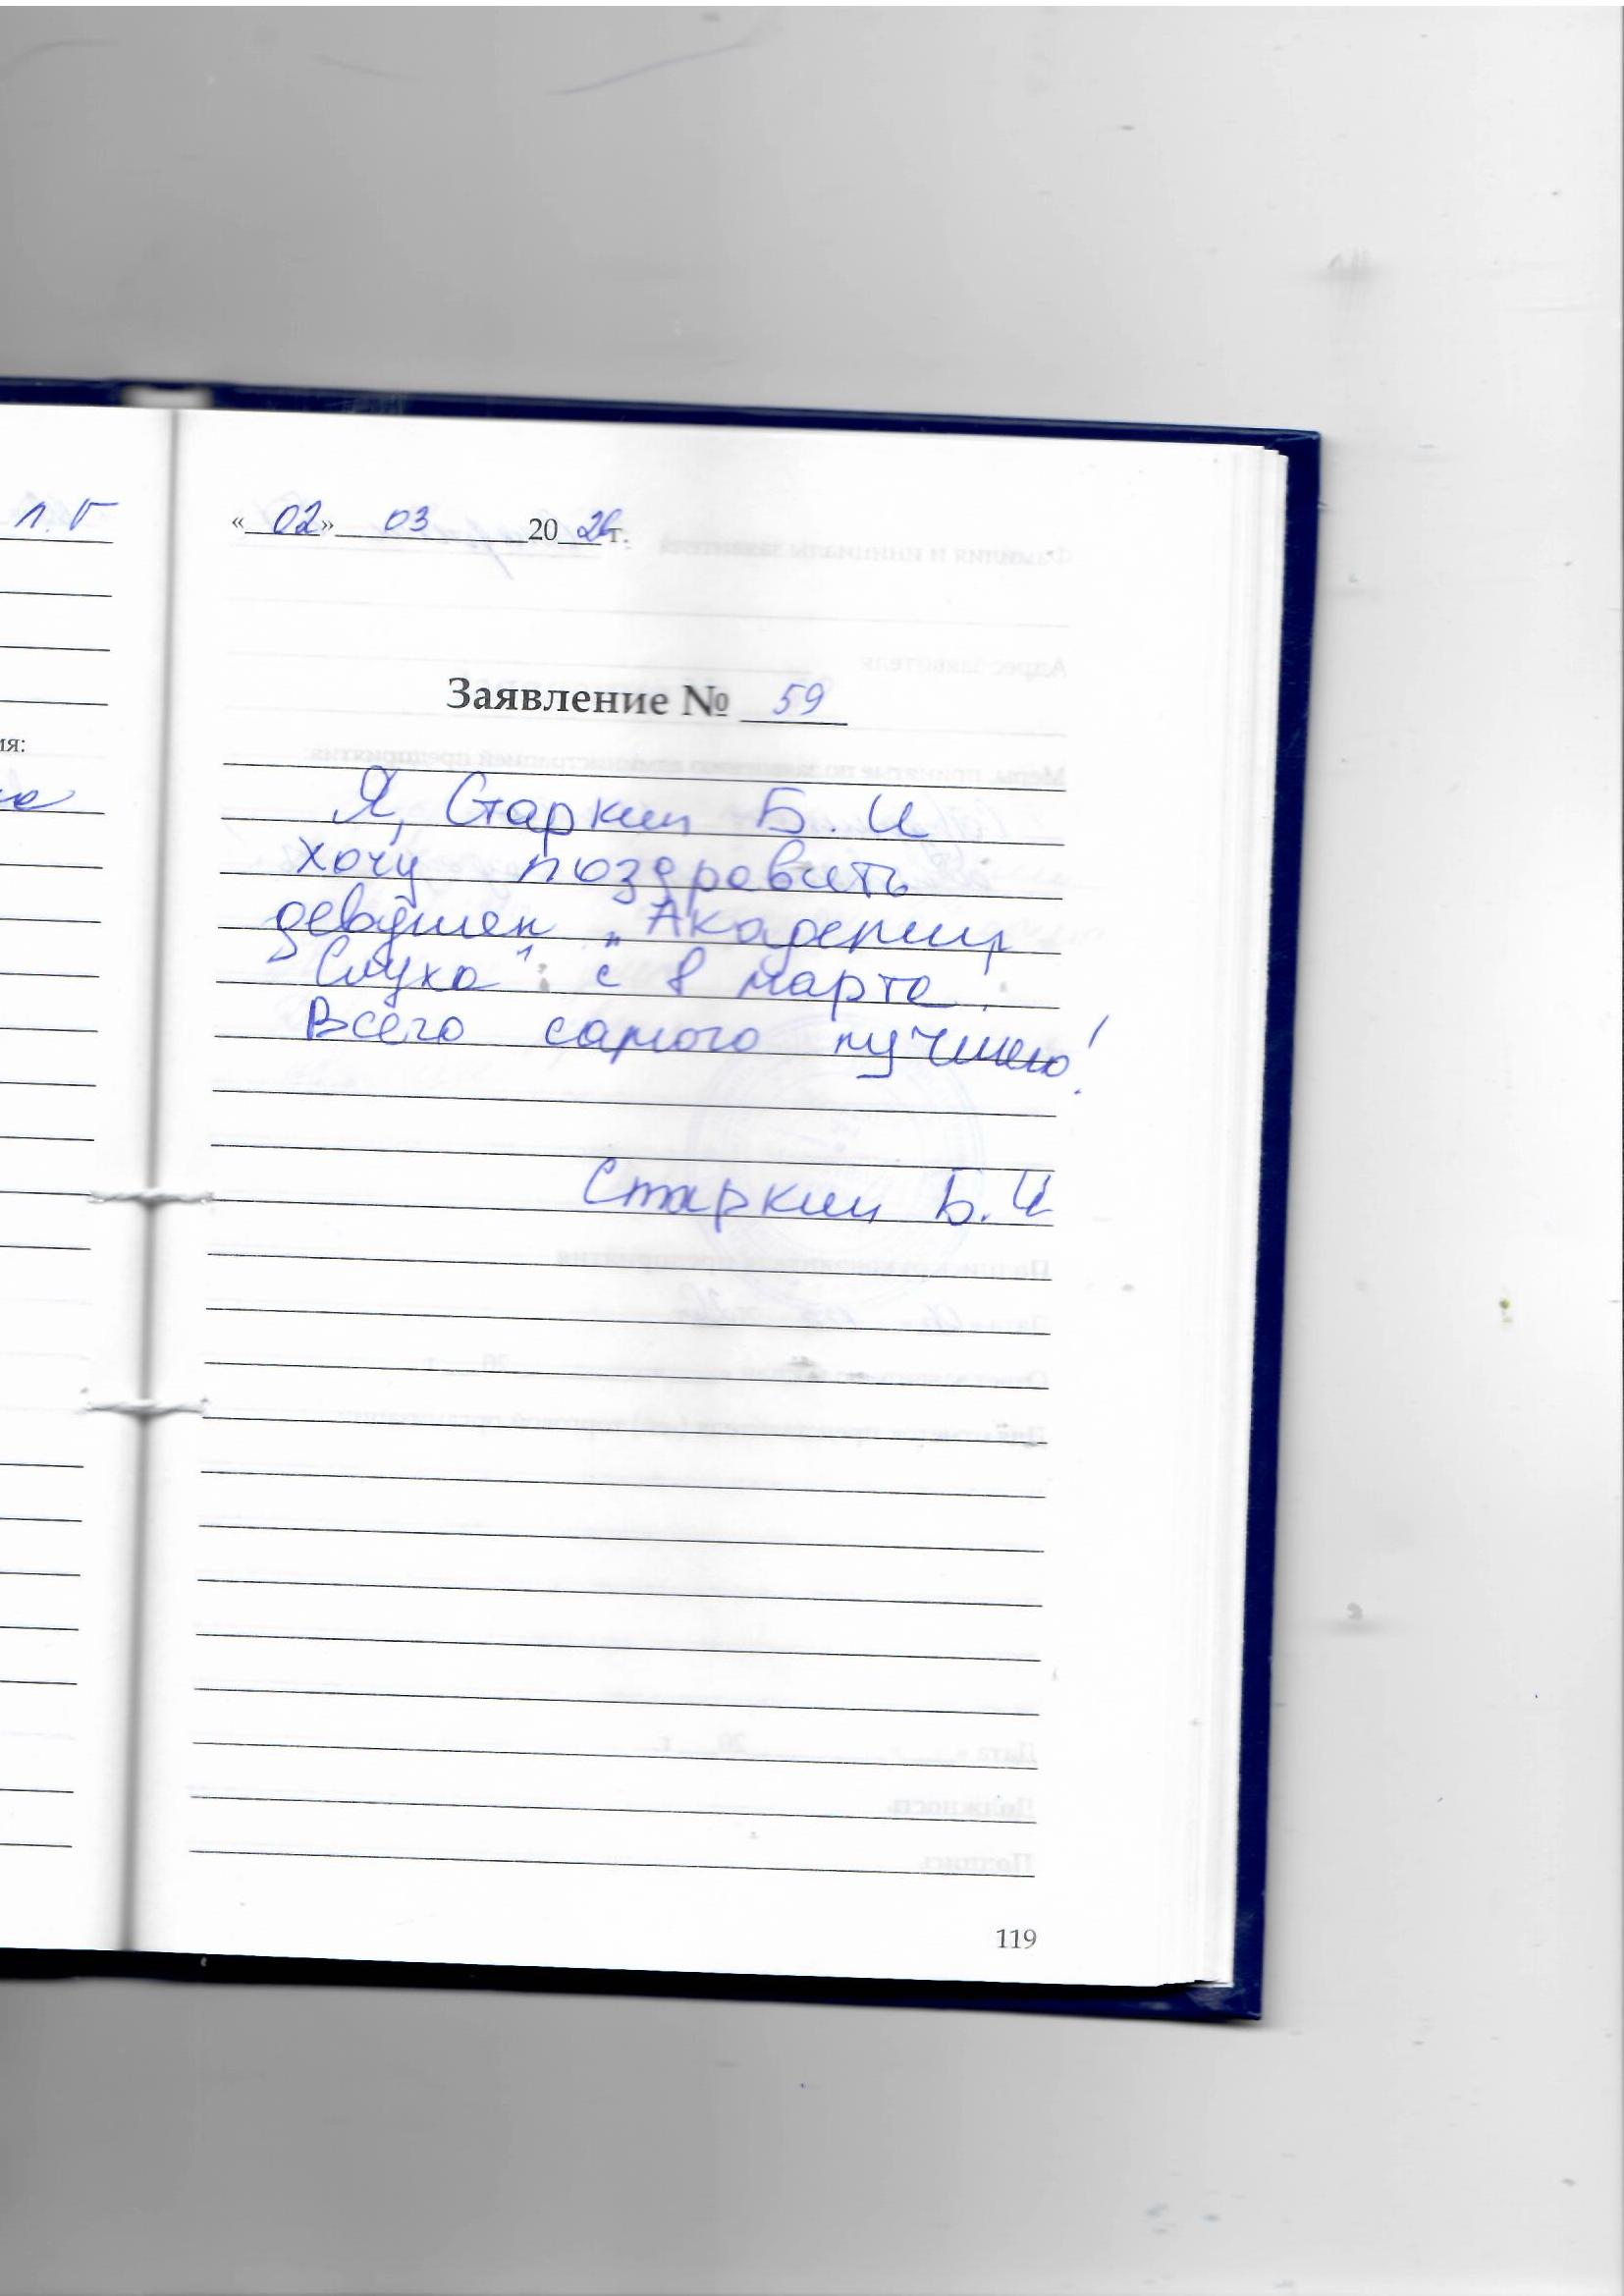 л. г
«02» 03 2026 г.
Заявление № 59
ия:
Я, Старкин Б. И
хочу поздравить
девушек „Академия
Слуха" с 8 марта!
Всего самого лучшего!
Старкин Б. И
119